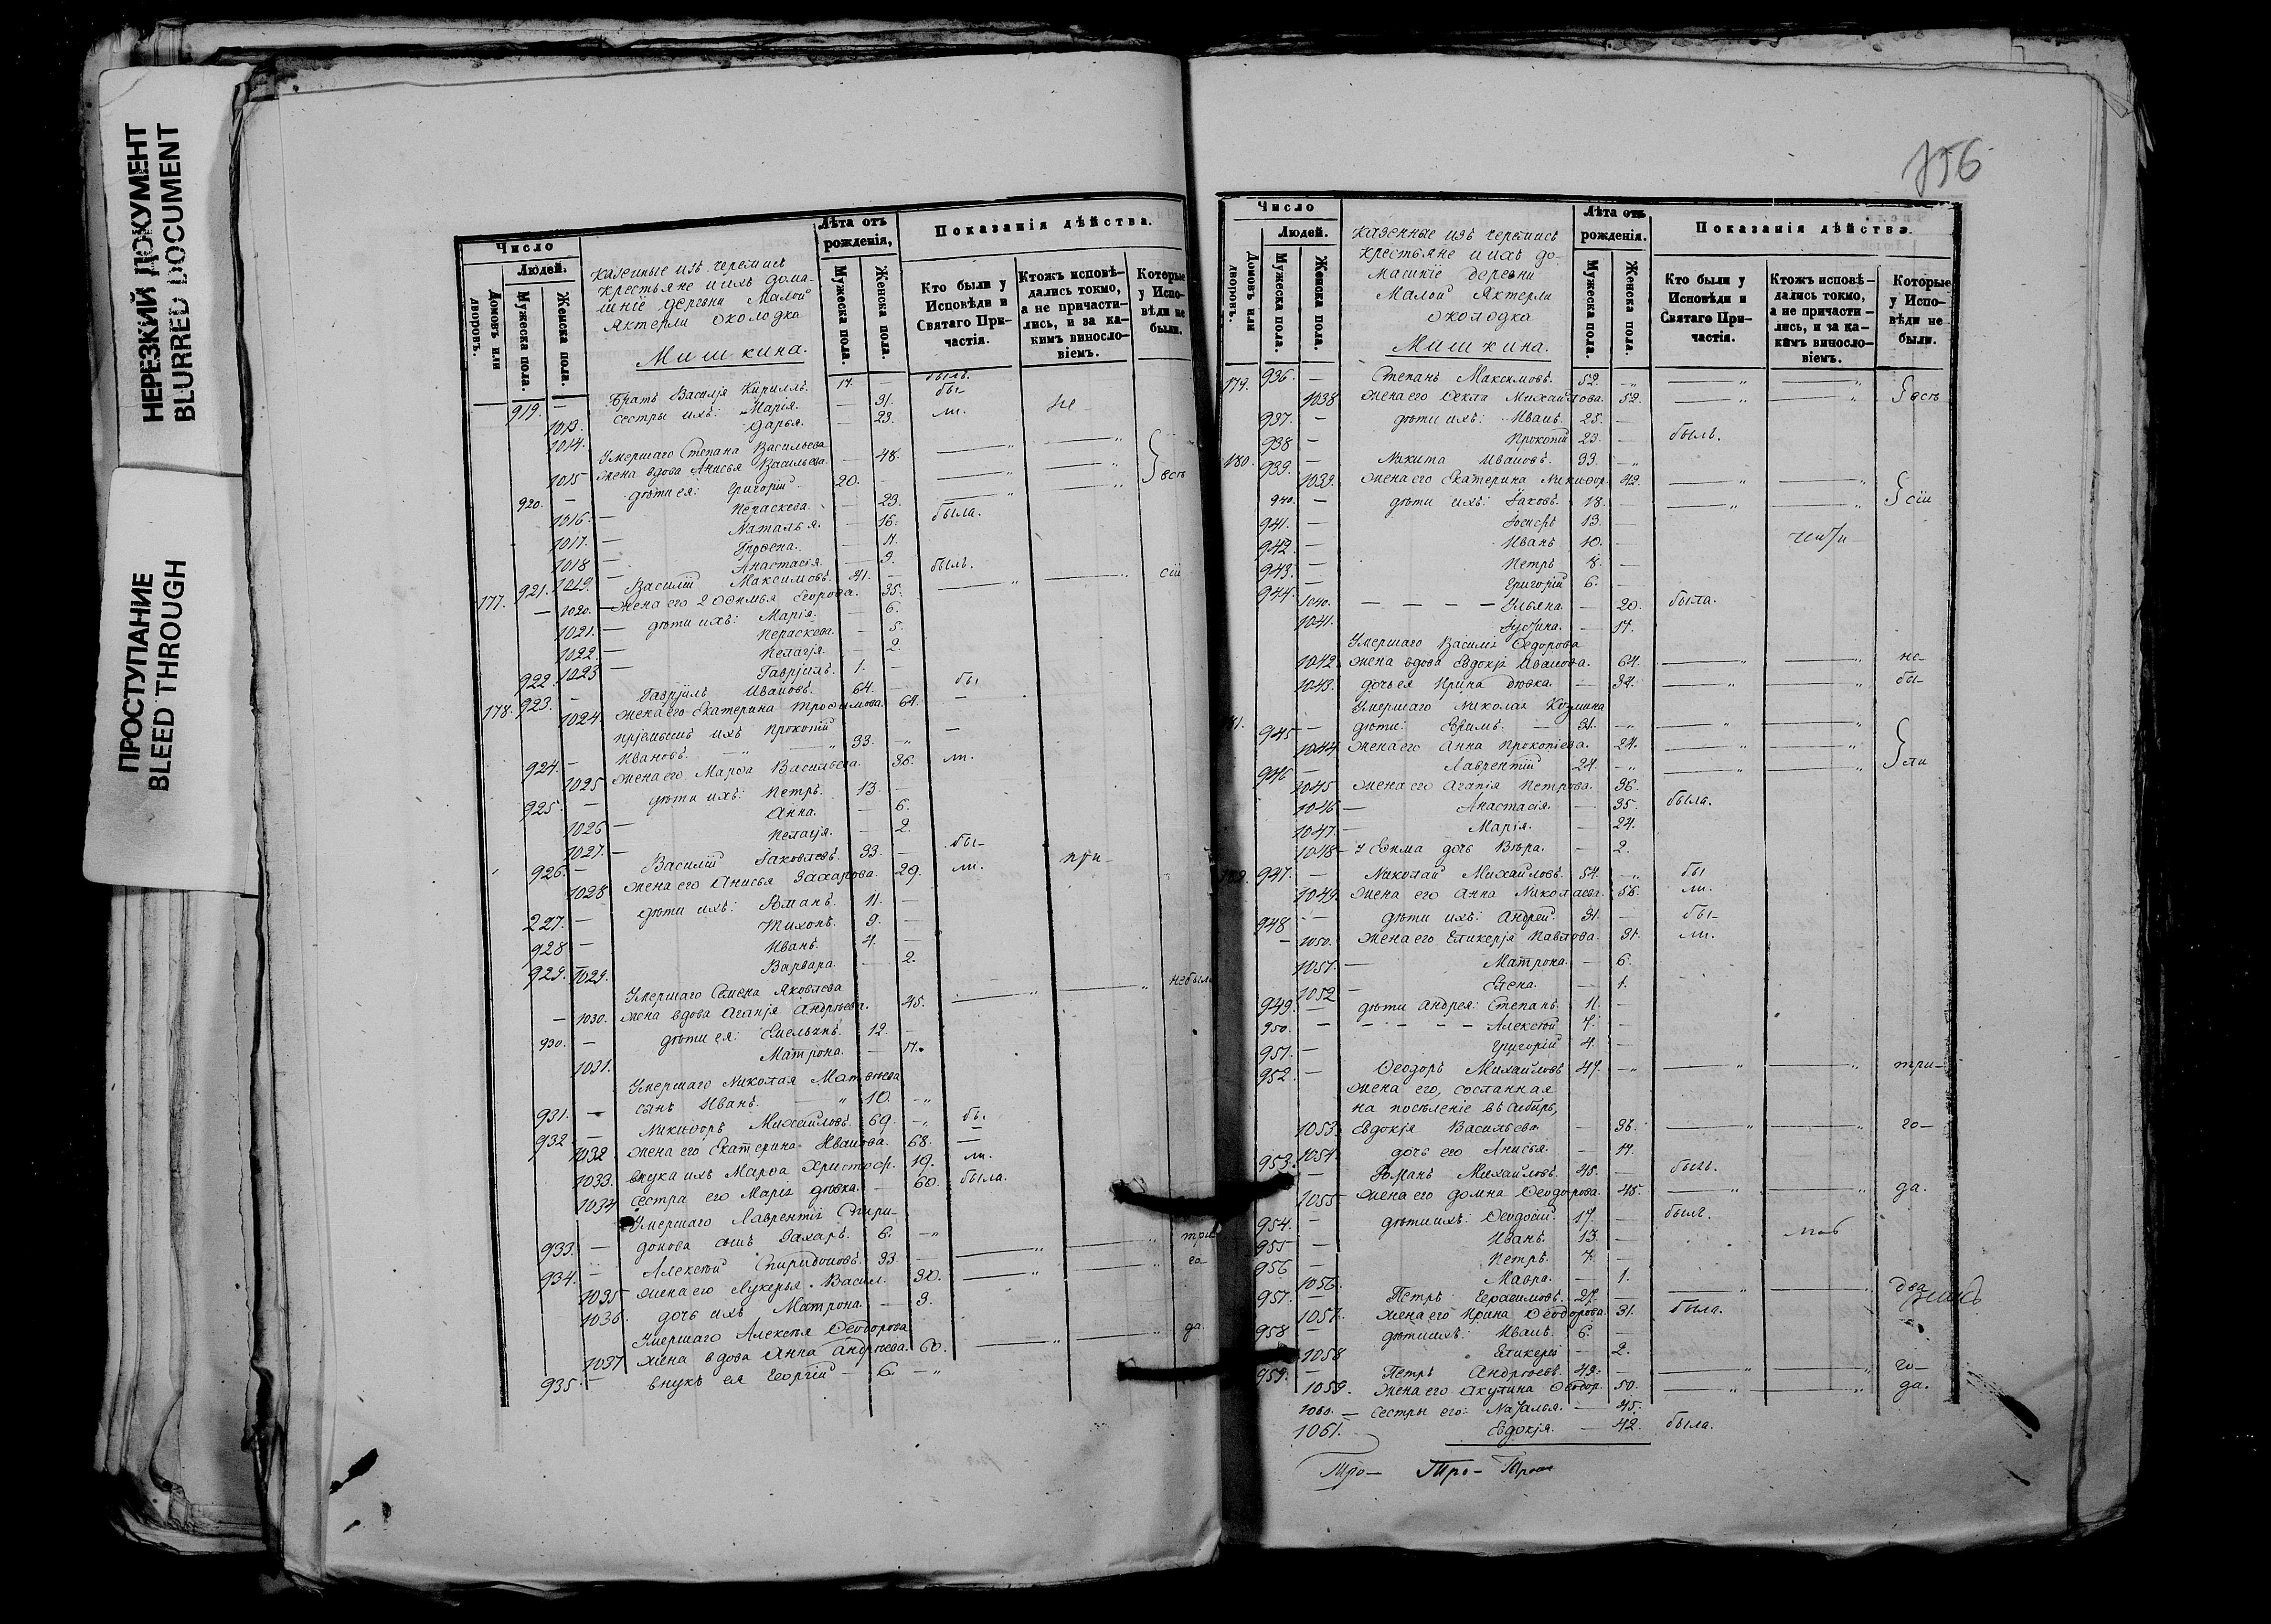 НЕРЕЗКИЙ ДОКУМЕНТ
BLURRED DOCUMENT
ПРОСТУПАНИЕ
BLEED THROUGH
Число
Людей.
Домовъ или дворовъ.
Мужеска пола.
Женска пола.
казенные изъ черемисъ
крестьяне и ихъ дома-
шніе деревни Малой
Яктерли околодка
Мишкина.
Лѣта отъ рожденія,
Мужеска пола.
Женска пола.
Показанія дѣйства.
Кто были у Исповѣди и Святаго При-частія.
Ктожъ исповѣ-дались токмо, а не причасти-лись, и за ка-кимъ винословіемъ.
Которые у Испо-вѣди не были.
919. — Братъ Василія Кириллъ. 17. — былъ.
1013. сестры ихъ: Марія. — 31. бы-
1014. Дарья. — 23. ли. не
Умершаго Степана Васильева
1015 жена вдова Анисья Васильева. — 48.
920. — дѣти ея: Григорій. 20. — есть
1016. — Параскева. — 23.
1017. — Наталья. — 16. была.
1018 — — 11.
1019. — Анастасія. — 9.
177. 921. Василій Максимовъ. 41. — былъ.
— 1020. — жена его Егорова. 35. сіи
1021. — дѣти ихъ: Марія. 6.
1022. — Параскева. — 5.
1023 — Пелагія. — 2.
922. Гавріилъ. 1. —
178. 923. — Гавріилъ Ивановъ. 64. — бы
1024. жена его Екатерина Трофимова. 64. —
пріемышъ ихъ Прокопій
924. — Ивановъ. 33. —
1025 жена его Марфа Васильева. 36. ли.
925. — дѣти ихъ: Петръ. 13. —
1026 — Анна. 6.
1027. — Пелагія. — 2.
926. — Василій Іаковлевъ. 33. — бы-
1028 жена его Анисья Захарова. 29. ли. при-
227. — дѣти ихъ: Романъ. 11. —
928 — Тихонъ. 9. —
929. — Иванъ. 4. —
1029. Варвара. — 2.
Умершаго Семена Яковлева
— 1030. жена вдова Агапія Андрѣева. 45. небыла
930. — дѣти ея: Емельянъ. 12. —
1031. Матрона. — 17.
Умершаго Николая Матвѣева
931. — сынъ Иванъ. 10. —
932 — Никифоръ Михайловъ. 69. — бы
1032 жена его Екатерина Иванова. 68. —
1033. внука ихъ Марфа Христоф. 19. ли.
1034 сестра его Марія дѣвка. — 60. была.
Умершаго Лаврентія Спири-
933. — донова сынъ Захаръ. 6. — три
934. — Алексѣй Спиридоновъ. 33. —
1035 жена его Лукерья Васил. 30.
1036. дочь ихъ Матрона. — 3.
Умершаго Алексѣя Ѳеодорова
1037 жена вдова Анна Андрѣева. 60. да
935. — внукъ ея Георгій — 6. —
156
Число
Людей.
Домовъ или дворовъ.
Мужеска пола.
Женска пола.
казенные изъ черемисъ
крестьяне и ихъ до-
машніе деревни
Малой Яктерли
околодка
Мишкина.
Лѣта отъ рожденія.
Мужеска пола.
Женска пола.
Показанія дѣйства.
Кто были у Исповѣди и Святаго При-частія.
Ктожъ исповѣ-дались токмо, а не причасти-лись, и за ка-кимъ винословіемъ.
Которые у Испо-вѣди не были.
179. 936. — Степанъ Максимовъ. 52. —
1038 жена его Ѳекла Михайлова. 52. есть
937. — дѣти ихъ: Иванъ. 25. —
938 — Прокопій 23. — былъ.
180. 939. — Никита Ивановъ. 33. —
1039. жена его Екатерина Никифор. 42.
940. — дѣти ихъ: Іаковъ. 18. — сіи
941. — Іосифъ 13. —
942. — Иванъ 10. —
943. — Петръ 8. —
944. — Григорій 6. —
1040. — — — — Ульяна. — 20. была.
1041. Іустина. — 17.
Умершаго Василія Ѳедорова
1042. жена вдова Евдокія Иванова. 64. не-
1043. дочь ея Ирина дѣвка. — 34. бы-
Умершаго Николая Козмина
181. 945 — дѣти: Ефимъ. — 31. —
1044 жена его Анна Прокопіева. 24.
946 — Лаврентій 24. — ли
1045 жена его Агапія Петрова. 36.
1046 — Анастасія. — 35. была.
1047. — Марія. — 24.
1048 — у Ефима дочь Вѣра. — 2.
182. 947. — Николай Михайловъ. 54. — бы
1049. жена его Анна Николаева. 56. ли.
948 — дѣти ихъ: Андрей. 31. — бы-
— 1050. жена его Гликерія Павлова. 31. ли.
1051. — Матрона. — 6.
1052 — Елена. — 1.
949. — дѣти Андрея: Степанъ. 11. —
950. — — — — — Алексѣй 7. —
951. — Григорій 4. —
952. — Ѳеодоръ Михайловъ 47. — три-
жена его, сосланная
на поселеніе въ Сибирь,
1053. Евдокія Васильева — 36. го-
1054. дочь его Анисья. — 14.
953. — Романъ Михайловъ. 45. — былъ.
1055. жена его Домна Ѳеодорова. 45. да.
954. — дѣти ихъ: Ѳеодосій. 17. — былъ.
955 — Иванъ. 13. —
956 — Петръ. 7. —
1056. Мавра. — 1.
957. Петръ Герасимовъ. 27. — два
1057. жена его Ирина Ѳеодорова. 31. была.
958 — дѣти ихъ: Иванъ. 6. —
1058 Гликерія — 2.
959. — Петръ Андрѣевъ. 49. — го-
1059. жена его Акулина Ѳеодор. 50. да.
1060. — сестры его: Наталья. — 45.
1061. Евдокія. — 42. была.
Тро- Тро-